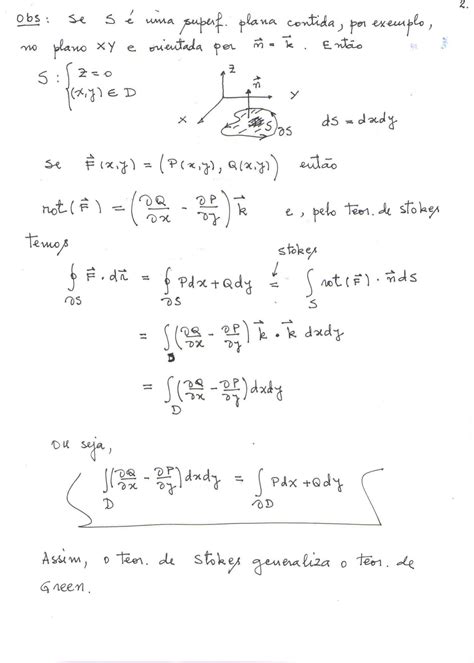 2.
Obs: Se S é uma superf. plana contida, por exemplo,
no plano XY e orientada por n⃗ = k⃗. Então
S: { z = 0
(x,y) ∈ D
z
n⃗
x
y
S
∂S
dS = dxdy
Se F⃗(x,y) = (P(x,y), Q(x,y)) então
rot(F⃗) = (∂Q/∂x - ∂P/∂y) k⃗ e, pelo Teor. de Stokes
temos
Stokes
∮_∂S F⃗ · dr⃗ = ∮_∂S Pdx + Qdy = ∫_S rot(F⃗) · n⃗ dS
= ∫ (∂Q/∂x - ∂P/∂y) k⃗ · k⃗ dxdy
= ∫_D (∂Q/∂x - ∂P/∂y) dxdy
Ou seja,
∫_D (∂Q/∂x - ∂P/∂y) dxdy = ∫_∂D Pdx + Qdy
Assim, o teor. de Stokes generaliza o teor. de
Green.